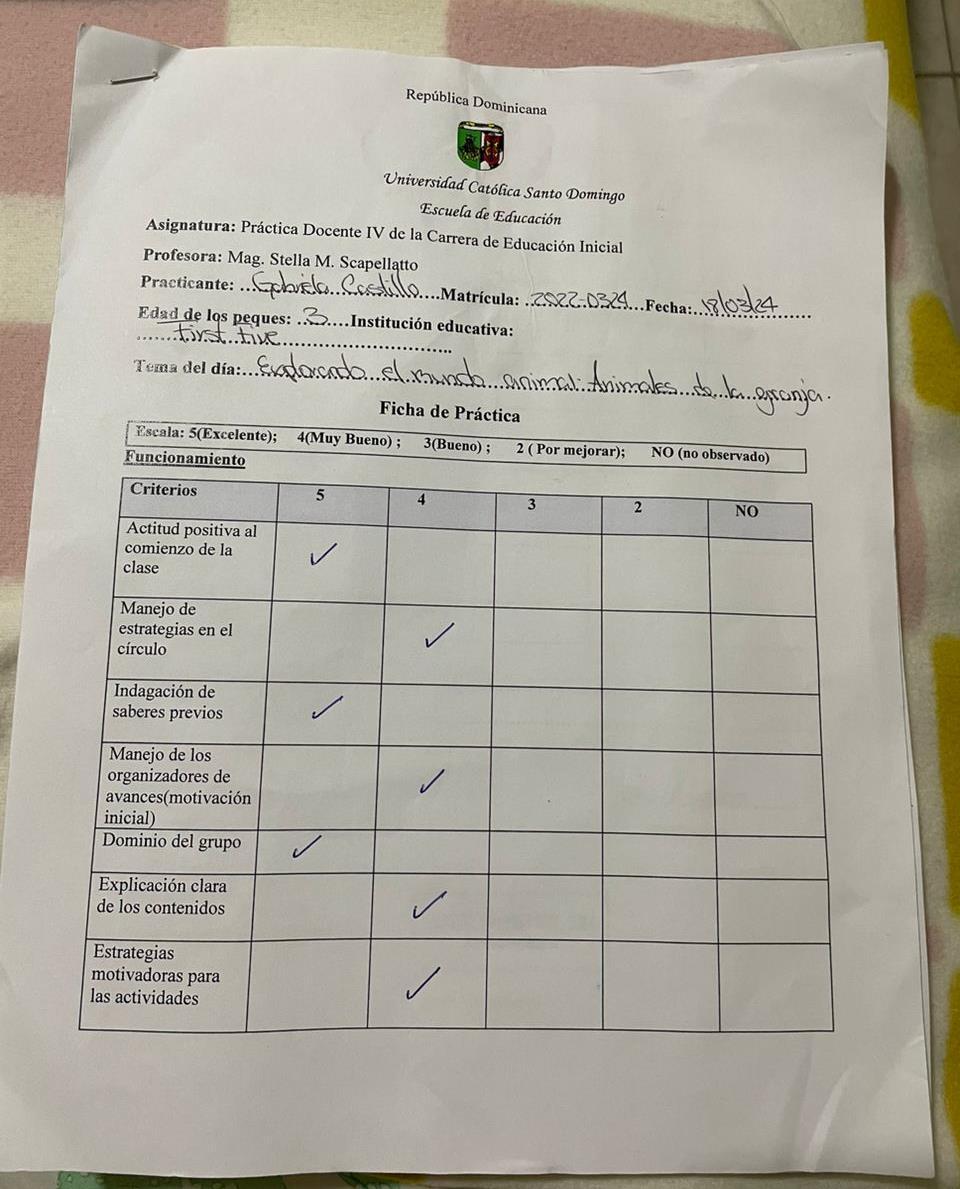 República Dominicana
Universidad Católica Santo Domingo
Escuela de Educación
Asignatura: Práctica Docente IV de la Carrera de Educación Inicial
Profesora: Mag. Stella M. Scapellatto
Practicante: ..Gabriela Castillo....Matrícula: ..2022-0324...Fecha:..18/03/24..............
Edad de los peques: ..3....Institución educativa:
.......First five...................................
Tema del día:...Explorando...el mundo...animal: Animales...de...la...granja.
Ficha de Práctica
Escala: 5(Excelente); 4(Muy Bueno) ; 3(Bueno) ; 2 ( Por mejorar); NO (no observado)
Funcionamiento
Criterios 5 4 3 2 NO
Actitud positiva al
comienzo de la
clase ✓
Manejo de
estrategias en el
círculo ✓
Indagación de
saberes previos ✓
Manejo de los
organizadores de
avances(motivación
inicial) ✓
Dominio del grupo ✓
Explicación clara
de los contenidos ✓
Estrategias
motivadoras para
las actividades ✓